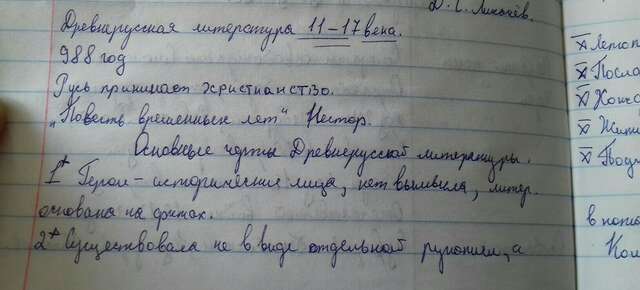 Д. С. Лихачёв.
Древнерусская литература 11-17 века.
988 год
Русь принимает христианство.
„Повесть временных лет" Нестор.
Основные черты Древнерусской литературы.
1* Герои - исторические лица, нет вымысла, литер.
основана на фактах.
2* Существовала не в виде отдельной рукописи, а
* Летоп
* Посла
* Хожд
* Жити
* Поуч
в